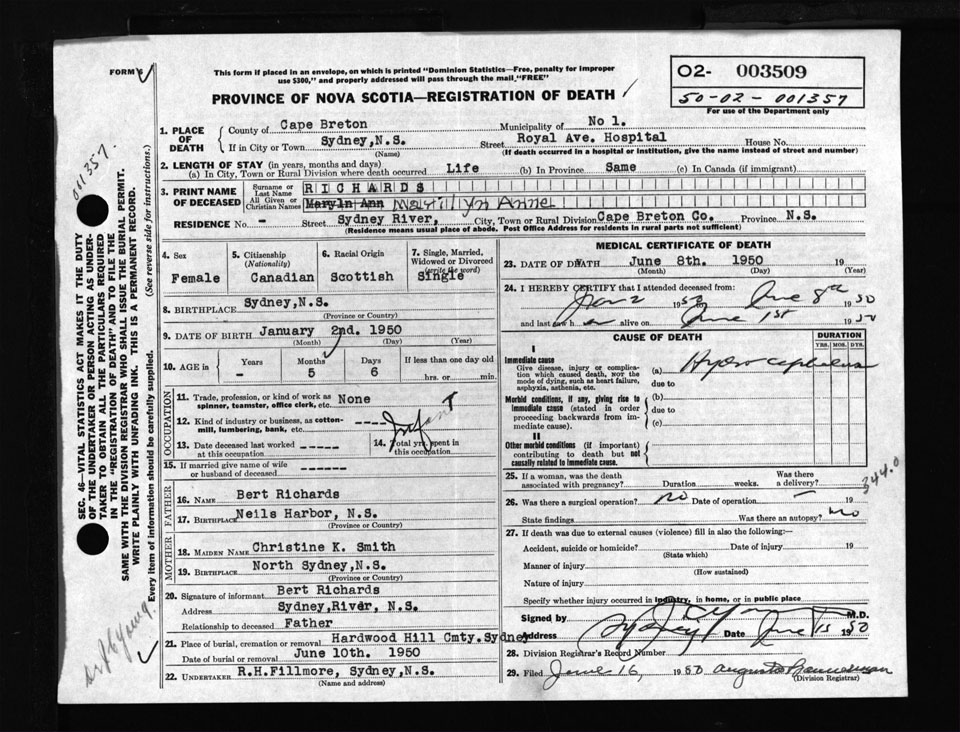 FORM 6
This form if placed in an envelope, on which is printed "Dominion Statistics—Free, penalty for improper
use $300," and properly addressed will pass through the mail "FREE"
PROVINCE OF NOVA SCOTIA—REGISTRATION OF DEATH
02- 003509
50-02-001357
For use of the Department only
001357.
SEC. 46—VITAL STATISTICS ACT MAKES IT THE DUTY
OF THE UNDERTAKER OR PERSON ACTING AS UNDER-
TAKER TO OBTAIN ALL THE PARTICULARS REQUIRED
IN THE "REGISTRATION OF DEATH" AND TO FILE THE
SAME WITH THE DIVISION REGISTRAR WHO SHALL ISSUE THE BURIAL PERMIT.
WRITE PLAINLY WITH UNFADING INK. THIS IS A PERMANENT RECORD.
Every item of information should be carefully supplied. (See reverse side for instructions.)
1. PLACE OF DEATH
County of Cape Breton Municipality of No 1.
If in City or Town Sydney,N.S. Street Royal Ave. Hospital House No.
(Name) (If death occurred in a hospital or institution, give the name instead of street and number)
2. LENGTH OF STAY (in years, months and days)
(a) In City, Town or Rural Division where death occurred Life (b) In Province Same (c) In Canada (if immigrant)
3. PRINT NAME OF DECEASED
Surname or Last Name RICHARDS
All Given or Christian Names Maryln Ann Marillyn Anne
RESIDENCE No. - Street Sydney River, City, Town or Rural Division Cape Breton Co. Province N.S.
(Residence means usual place of abode. Post Office Address for residents in rural parts not sufficient)
4. Sex Female
5. Citizenship (Nationality) Canadian
6. Racial Origin Scottish
7. Single, Married, Widowed or Divorced (write the word) Single
8. BIRTHPLACE Sydney,N.S.
(Province or Country)
9. DATE OF BIRTH January 2nd. 1950
(Month) (Day) (Year)
10. AGE in Years - Months 5 Days 6 If less than one day old hrs. or min.
OCCUPATION
11. Trade, profession, or kind of work as spinner, teamster, office clerk, etc. None
12. Kind of industry or business, as cotton-mill, lumbering, bank, etc. ----
Infant
13. Date deceased last worked at this occupation -----
14. Total yrs. spent in this occupation
15. If married give name of wife or husband of deceased ------
FATHER
16. NAME Bert Richards
17. BIRTHPLACE Neils Harbor, N.S.
(Province or Country)
MOTHER
18. MAIDEN NAME Christine K. Smith
19. BIRTHPLACE North Sydney,N.S.
(Province or Country)
20. Signature of informant Bert Richards
Address Sydney,River, N.S.
Relationship to deceased Father
21. Place of burial, cremation or removal Hardwood Hill Cmty.Sydney
Date of burial or removal June 10th. 1950
22. UNDERTAKER R.H.Fillmore, Sydney,N.S.
(Name and address)
MEDICAL CERTIFICATE OF DEATH
23. DATE OF DEATH June 8th. 1950 19
(Month) (Day) (Year)
24. I HEREBY CERTIFY that I attended deceased from:
Jan 2 1950 to June 8th 1950
and last saw h er alive on June 1st 1950
CAUSE OF DEATH
DURATION
YRS. MOS. DYS.
I
Immediate cause
Give disease, injury or complication which caused death, NOT the mode of dying, such as heart failure, asphyxia, asthenia, etc.
(a) Hydrocephalus
due to
Morbid conditions, if any, giving rise to immediate cause (stated in order proceeding backwards from immediate cause).
(b)
due to
(c)
II
Other morbid conditions (if important) contributing to death but not causally related to immediate cause.
344.0
25. If a woman, was the death associated with pregnancy? Duration weeks. Was there a delivery? –
26. Was there a surgical operation? no Date of operation 19
State findings Was there an autopsy? no
27. If death was due to external causes (violence) fill in also the following:—
Accident, suicide or homicide? Date of injury 19
(State which)
Manner of injury
(How sustained)
Nature of injury
Specify whether injury occurred in industry, in home, or in public place
Signed by M.D.
Address Sydney Date June 15 1950
28. Division Registrar's Record Number
29. Filed June 16, 1950 Bannerman
(Division Registrar)